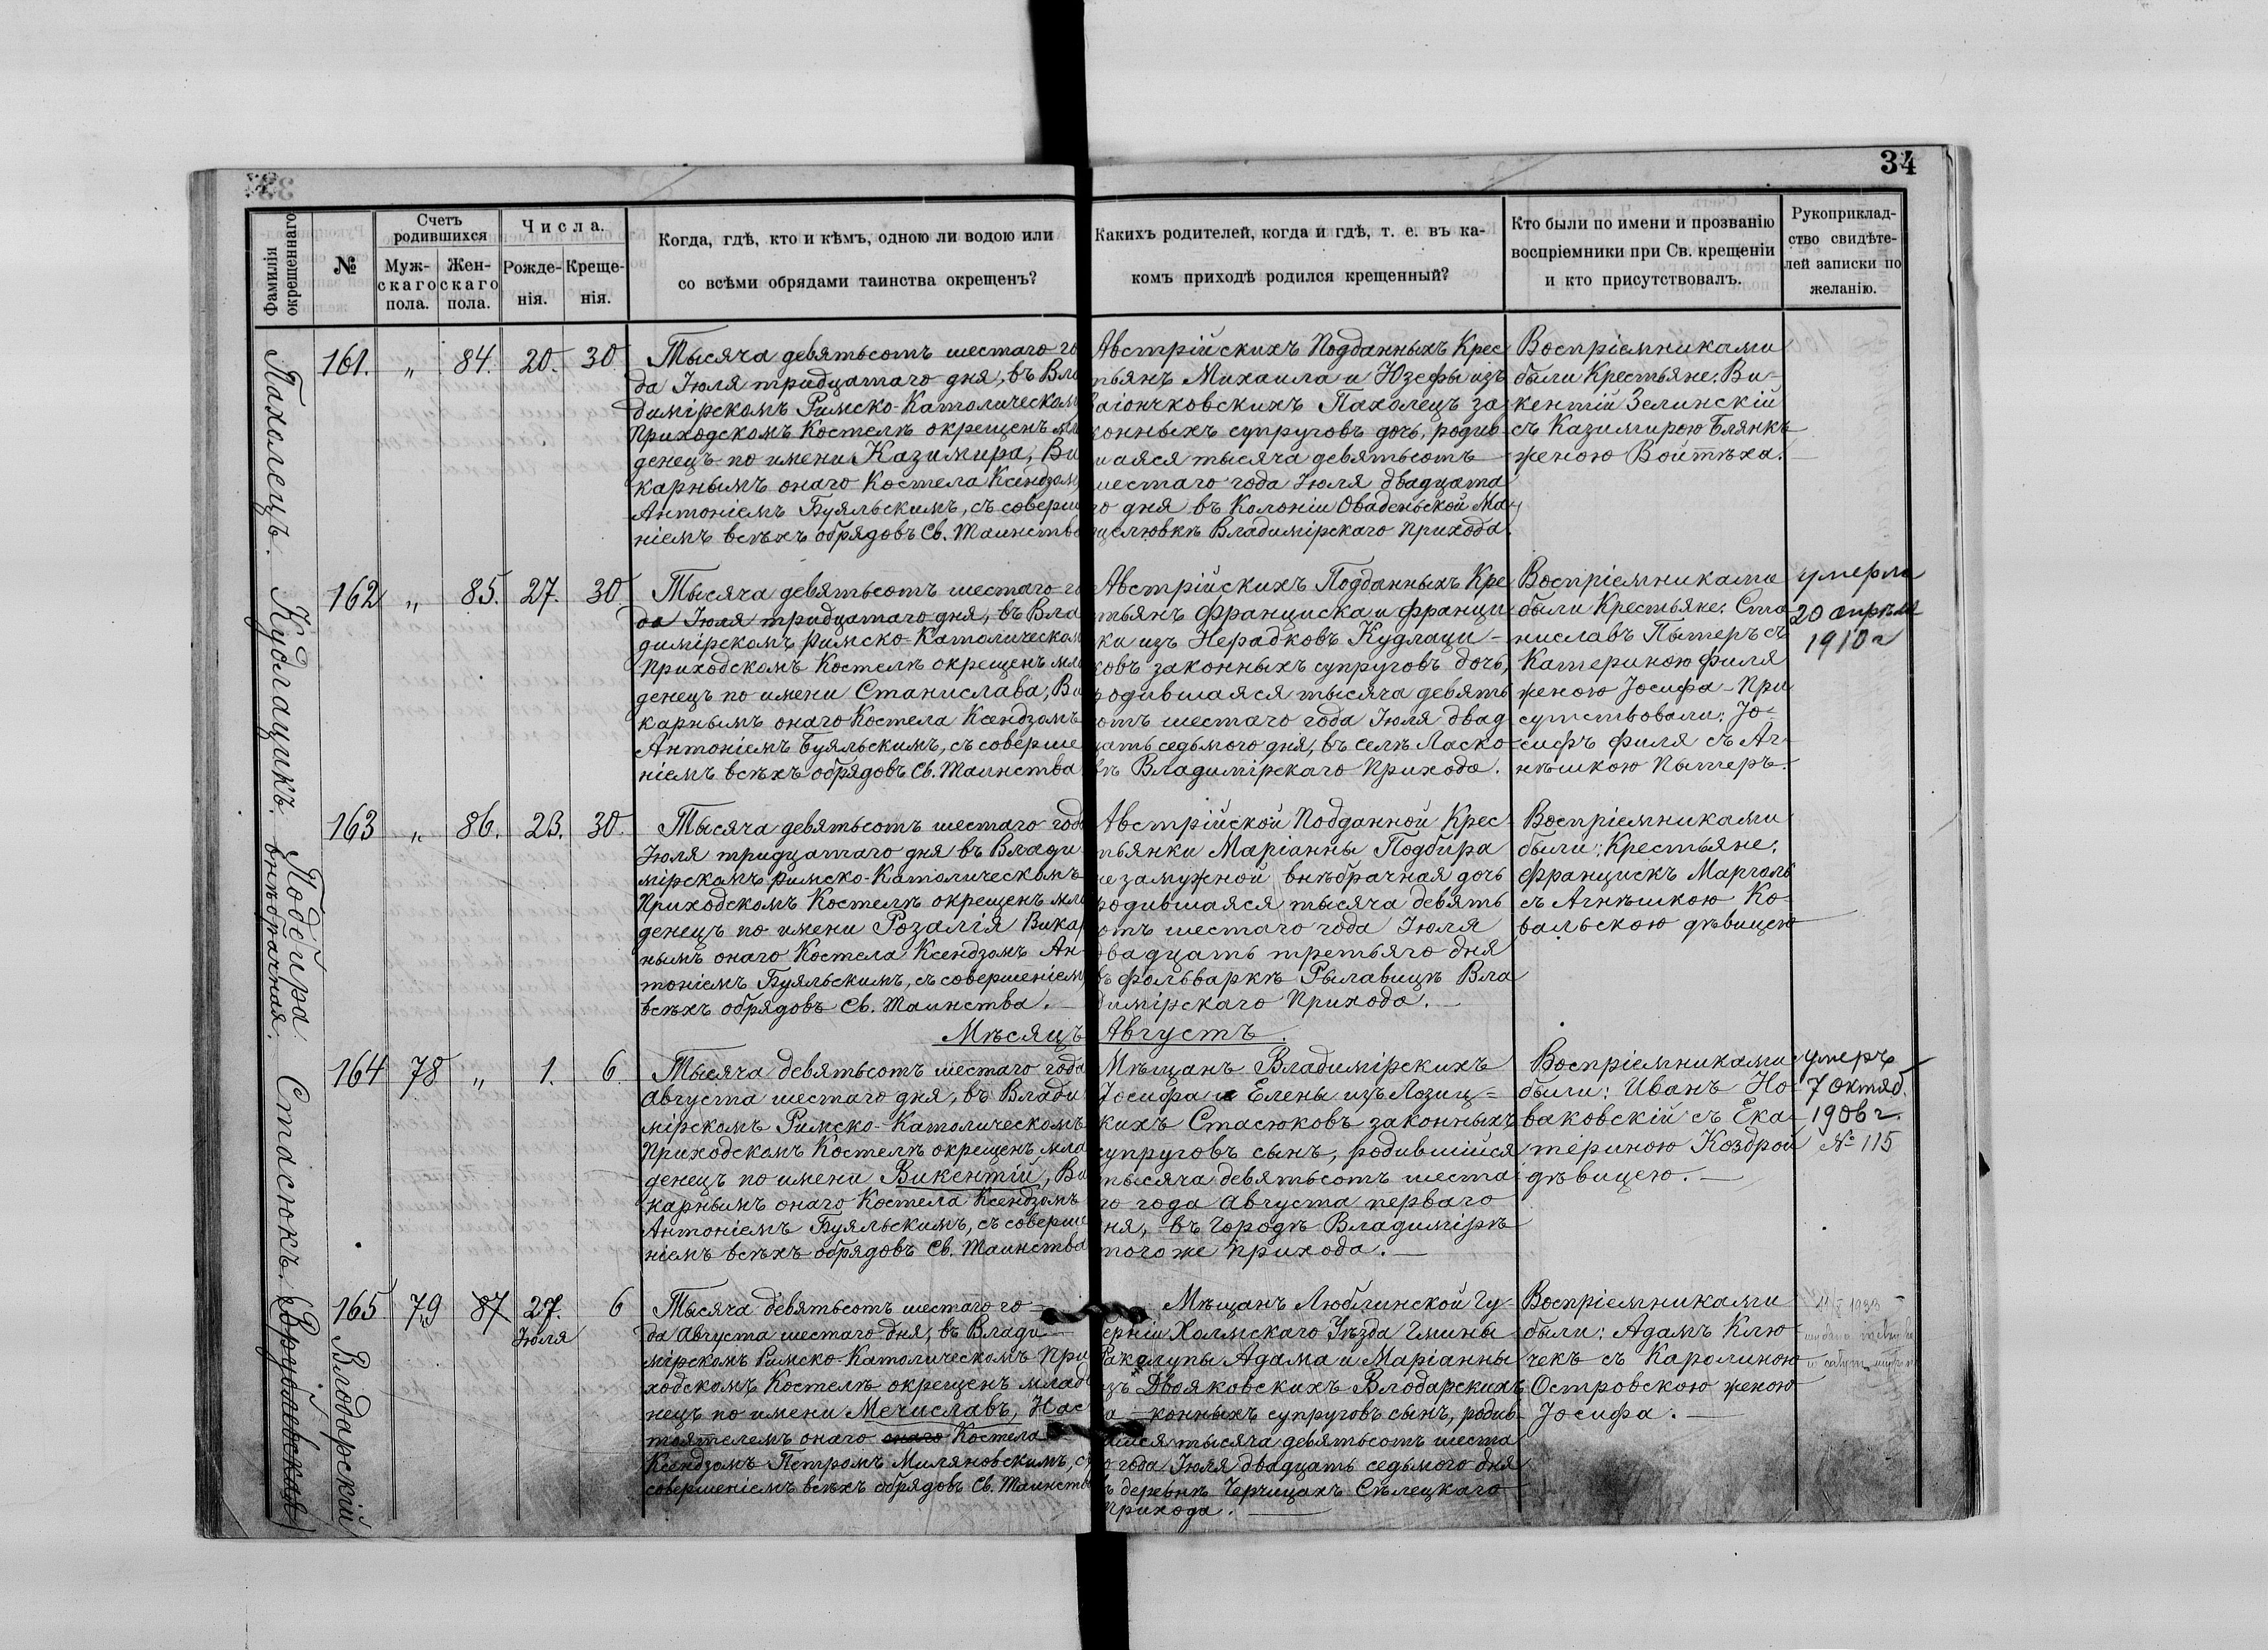 34
Фамилія окрещеннаго.
№
Счетъ родившихся
Муж-
скаго
пола.
Жен-
скаго
пола.
Числа.
Рожде-
нія.
Креще-
нія.
Когда, гдѣ, кто и кѣмъ, одною ли водою или
со всѣми обрядами таинства окрещенъ?
Какихъ родителей, когда и гдѣ, т. е. въ ка-
комъ приходѣ родился крещенный?
Кто были по имени и прозванію
воспріемники при Св. крещеніи
и кто присутствовалъ.
Рукоприклад-
ство свидѣте-
лей записки по
желанію.
Пахолецъ.
161. „ 84. 20. 30
Тысяча девятьсотъ шестаго го
да Іюля тридцатаго дня, въ Вла
димірскомъ Римско-Католическом
Приходскомъ Костелѣ окрещенъ мла
денецъ по имени Казимира, Ви
карнымъ онаго Костела Ксендзом
Антоніемъ Буяльскимъ, съ соверше
ніемъ всѣхъ обрядовъ Св. Таинства
Австрійскихъ Подданныхъ Крес
тьянъ Михаила и Юзефы изъ
Заіончковскихъ Пахолецъ за
конныхъ супруговъ дочь, родив-
шаяся тысяча девятьсотъ
шестаго года Іюля двадцата
го дня въ Колоніи Оваденьской Ма
целювкѣ Владимірскаго Прихода.
Воспріемниками
были Крестьяне: Ви-
кентій Зелинскій
съ Казимирою Блянкъ
женою Войтѣха.
Кудлацикъ.
162 „ 85. 27. 30
Тысяча девятьсотъ шестаго го
да Іюля тридцатаго дня, въ Вла
димірскомъ Римско-Католическом
Приходскомъ Костелѣ окрещенъ мла
денецъ по имени Станислава, Ви
карнымъ онаго Костела Ксендзомъ
Антоніемъ Буяльскимъ, съ соверше
ніемъ всѣхъ обрядовъ Св. Таинства
Австрійскихъ Подданныхъ Кре
тьянъ Франциска и Франци
ки изъ Нерадковъ Кудлаци-
ковъ законныхъ супруговъ дочь,
родившаяся тысяча девять
отъ шестаго года Іюля двад
цать седьмого дня, въ селѣ Ласко-
вѣ Владимірскаго Прихода.
Воспріемниками
были Крестьяне: Ста
ниславъ Пытеръ съ
Катериною Филя
женою Іосифа-При
сутствовали: Іо-
сифъ Филя съ Аг-
нѣшкою Пытеръ.
умерла
20 апрѣля
1910 г
Подбира
внѣбрачная.
163 „ 86. 23. 30.
Тысяча девятьсотъ шестаго года
Іюля тридцатаго дня въ Влади-
мірскомъ Римско-Католическомъ
Приходскомъ Костелѣ окрещенъ мла
денецъ по имени Розалія Викар
нымъ онаго Костела Ксендзомъ Ан-
тоніемъ Буяльскимъ, съ совершеніем
всѣхъ обрядовъ Св. Таинства.
Австрійской Подданной Крес
тьянки Маріанны Подбира
не замужной внѣбрачная дочь
родившаяся тысяча девять
отъ шестаго года Іюля
двадцать третьяго дня
въ Фольваркѣ Рылавицѣ Вла
димірскаго Прихода.
Воспріемниками
были: Крестьяне:
Францискъ Марголь
съ Агнѣшкою Ко-
вальскою дѣвицею
Мѣсяцъ Августъ.
Стасюкъ.
164 78 „ 1. 6.
Тысяча девятьсотъ шестаго года
Августа шестаго дня, въ Влади
мірскомъ Римско-Католическомъ
Приходскомъ Костелѣ окрещенъ мла
денецъ по имени Викентій, Ви
карнымъ онаго Костела Ксендзомъ
Антоніемъ Буяльскимъ, съ соверше
ніемъ всѣхъ обрядовъ Св. Таинства
Мѣщанъ Владимірскихъ
Іосифа и Елены изъ Лозиц-
кихъ Стасюковъ законныхъ
супруговъ сынъ, родившійся
тысяча девятьсотъ шеста
го года Августа перваго
дня, въ Городѣ Владимірѣ
того же прихода.
Воспріемниками
были: Иванъ Но-
ваковскій съ Ека-
териною Коздрой
дѣвицею.
умеръ
7 Октяб.
1906 г.
№ 115
Влодарскій
165 79 87 27. 6
Іюля
Тысяча девятьсотъ шестаго го-
да Августа шестаго дня, въ Влади-
мірскомъ Римско-Католическомъ При
ходскомъ Костелѣ окрещенъ младе
нецъ по имени Мечиславъ, Нас
тоятелемъ онаго онаго Костела
Ксендзомъ Петромъ Миляновскимъ, съ
совершеніемъ всѣхъ обрядовъ Св. Таинства
Мѣщанъ Люблинской Гу-
берніи Холмскаго Уѣзда Гмины
Раколупы Адама и Маріанны
изъ Двояковскихъ Влодарскихъ
за конныхъ супруговъ сынъ, родив-
шійся тысяча девятьсотъ шеста
го года Іюля двадцать седьмого дня
въ деревнѣ Черчицахъ Сѣлецкаго
Прихода.
Воспріемниками
были: Адамъ Клю
чекъ съ Каролиною
Островскою женою
Іосифа.